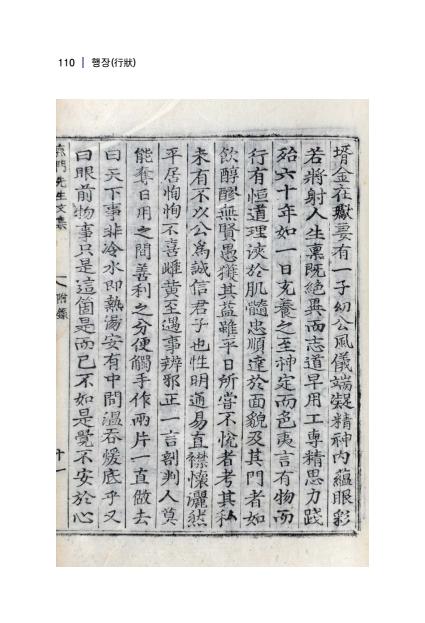 110 | 행장(行狀)
壻金在獻妻有一子幼公風儀端凝精神內蘊眼彩
若將射人生稟旣絶異而志道早用工專精思力踐
殆六十年如一日充養之至神定而色夷言有物而
行有恒道理浹於肌髓忠順達於面貌及其門者如
飮醇醪無賢愚獲其益雖平日所嘗不悅者考其私
未有不以公爲誠信君子也性明通易直襟懷灑然
平居恂恂不喜雌黃至遇事辨邪正一言剖判人莫
能奪日用之間善利之分便觸手作兩片一直做去
曰天下事非冷水卽熱湯安有中間溫呑煖底乎又
曰眼前物事只是這箇是而已不如是覺不安於心
先生文集
附錄
十一